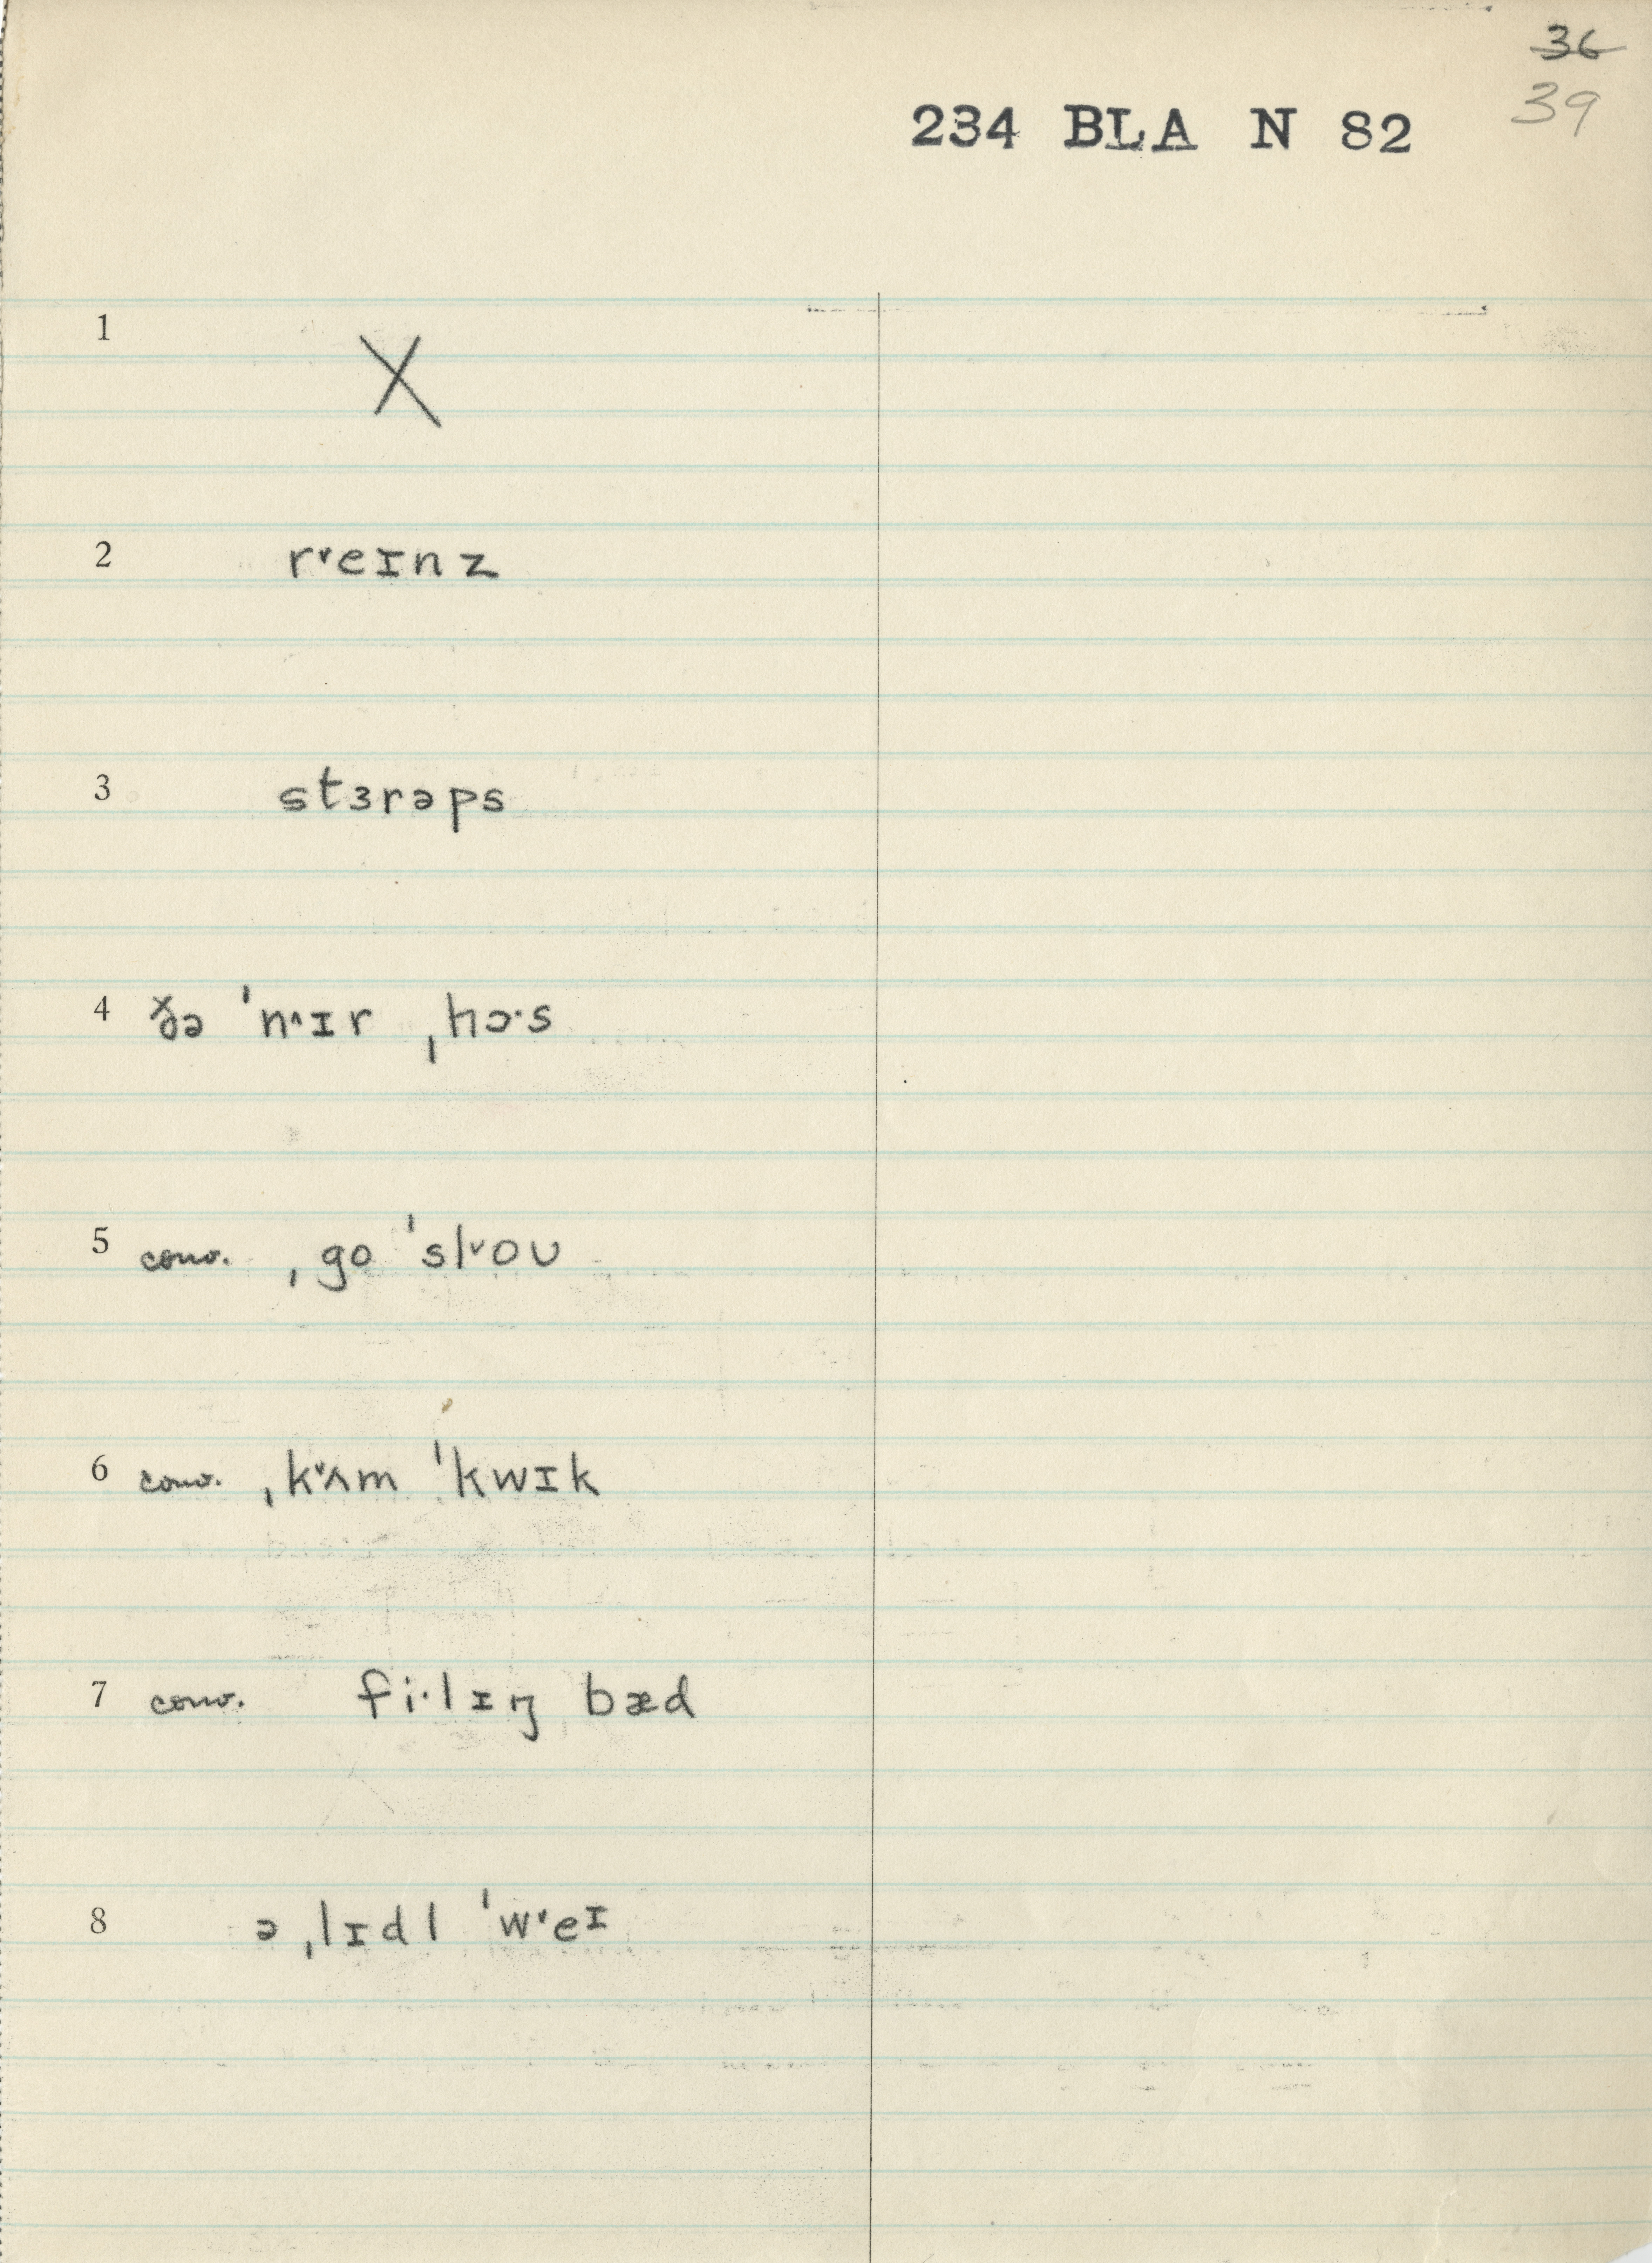 ~~36~~
39
234 BLA N 82
1 X
2 r˅eɪnz
3 stɜrəps
4 ðə ˈn˄ɪr ˌhɔ·s
5 conv. ˌgo ˈsl˅oʊ
6 conv. ˌk˅ʌm ˈkwɪk
7 conv. fi·lɪŋ bæd
8 ə ˌlɪdl ˈw˅eɪ